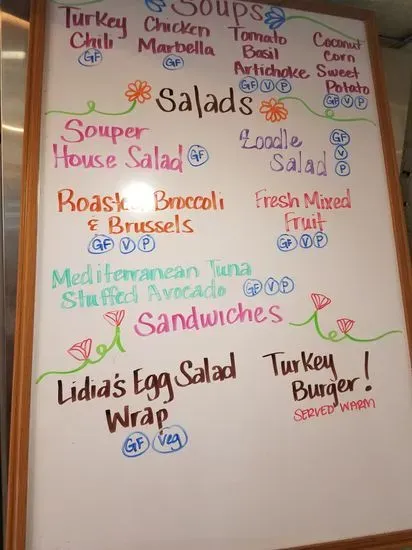 Soups
Turkey
Chili
GF
Chicken
Marbella
GF
Tomato
Basil
Artichoke
GF V P
Coconut
Corn
Sweet
Potato
GF V P
Salads
Souper
House Salad GF
Zoodle
Salad
GF
V
P
Roasted Broccoli
& Brussels
GF V P
Fresh Mixed
Fruit
GF V P
Mediterranean Tuna
Stuffed Avocado GF V P
Sandwiches
Lidia's Egg Salad
Wrap
GF Veg
Turkey
Burger!
SERVED WARM